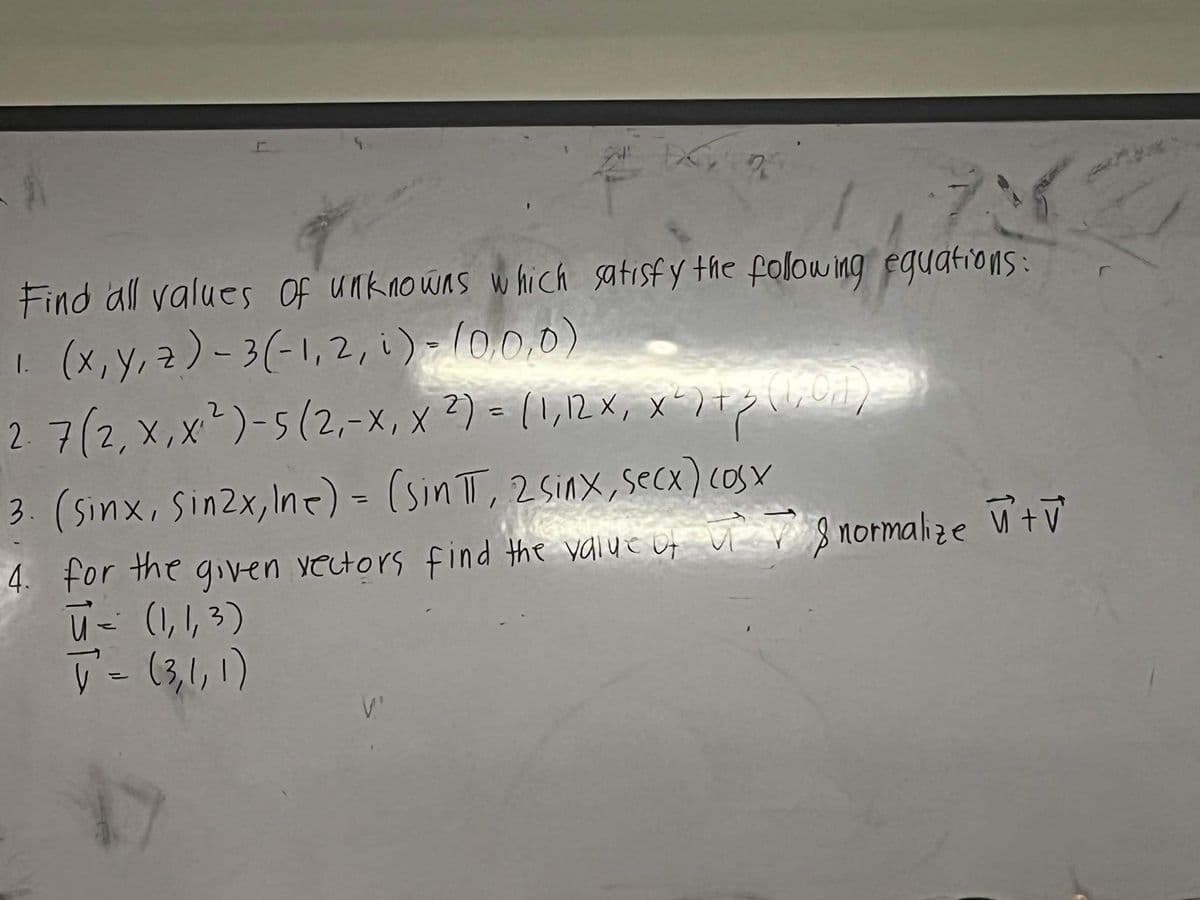 Find all values of unknowns which satisfy the following equations:
1. (x, y, z) - 3(-1, 2, i) = (0,0,0)
2. 7(2, x, x²) - 5(2, -x, x²) = (1, 12x, x²) + 3(1,0,1)
3. (sinx, sin2x, lne) = (sin π, 2sinx, secx) cosx
4. for the given vectors find the value of u⃗ v⃗ & normalize u⃗ + v⃗
u⃗ = (1, 1, 3)
v⃗ = (3, 1, 1)